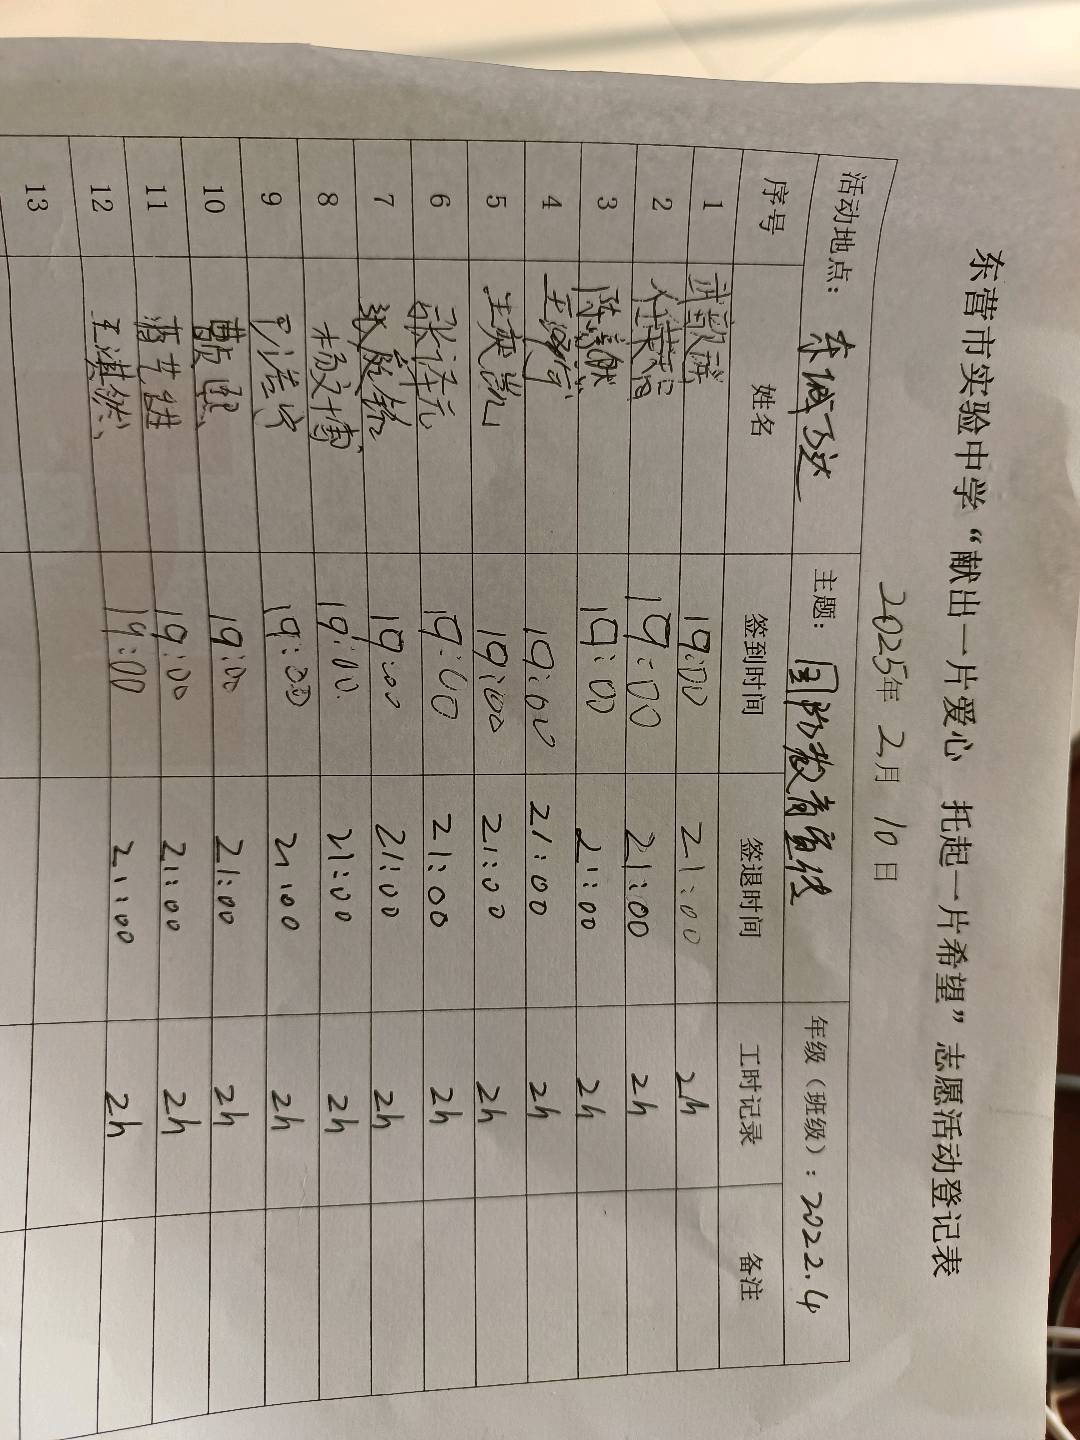 东营市实验中学“献出一片爱心 托起一片希望”志愿活动登记表
2025年 2月 10日
活动地点: 东城万达 主题: 国防教育宣传 年级（班级）: 2022.4
序号 姓名 签到时间 签退时间 工时记录 备注
1 武歆祺 19:00 21:00 2h
2 19:00 21:00 2h
3 19:00 21:00 2h
4 19:00 21:00 2h
5 王奕凯 19:00 21:00 2h
6 张泽元 19:00 21:00 2h
7 19:00 21:00 2h
8 杨文博 19:00 21:00 2h
9 19:00 21:00 2h
10 19:00 21:00 2h
11 19:00 21:00 2h
12 王淇然 19:00 21:00 2h
13